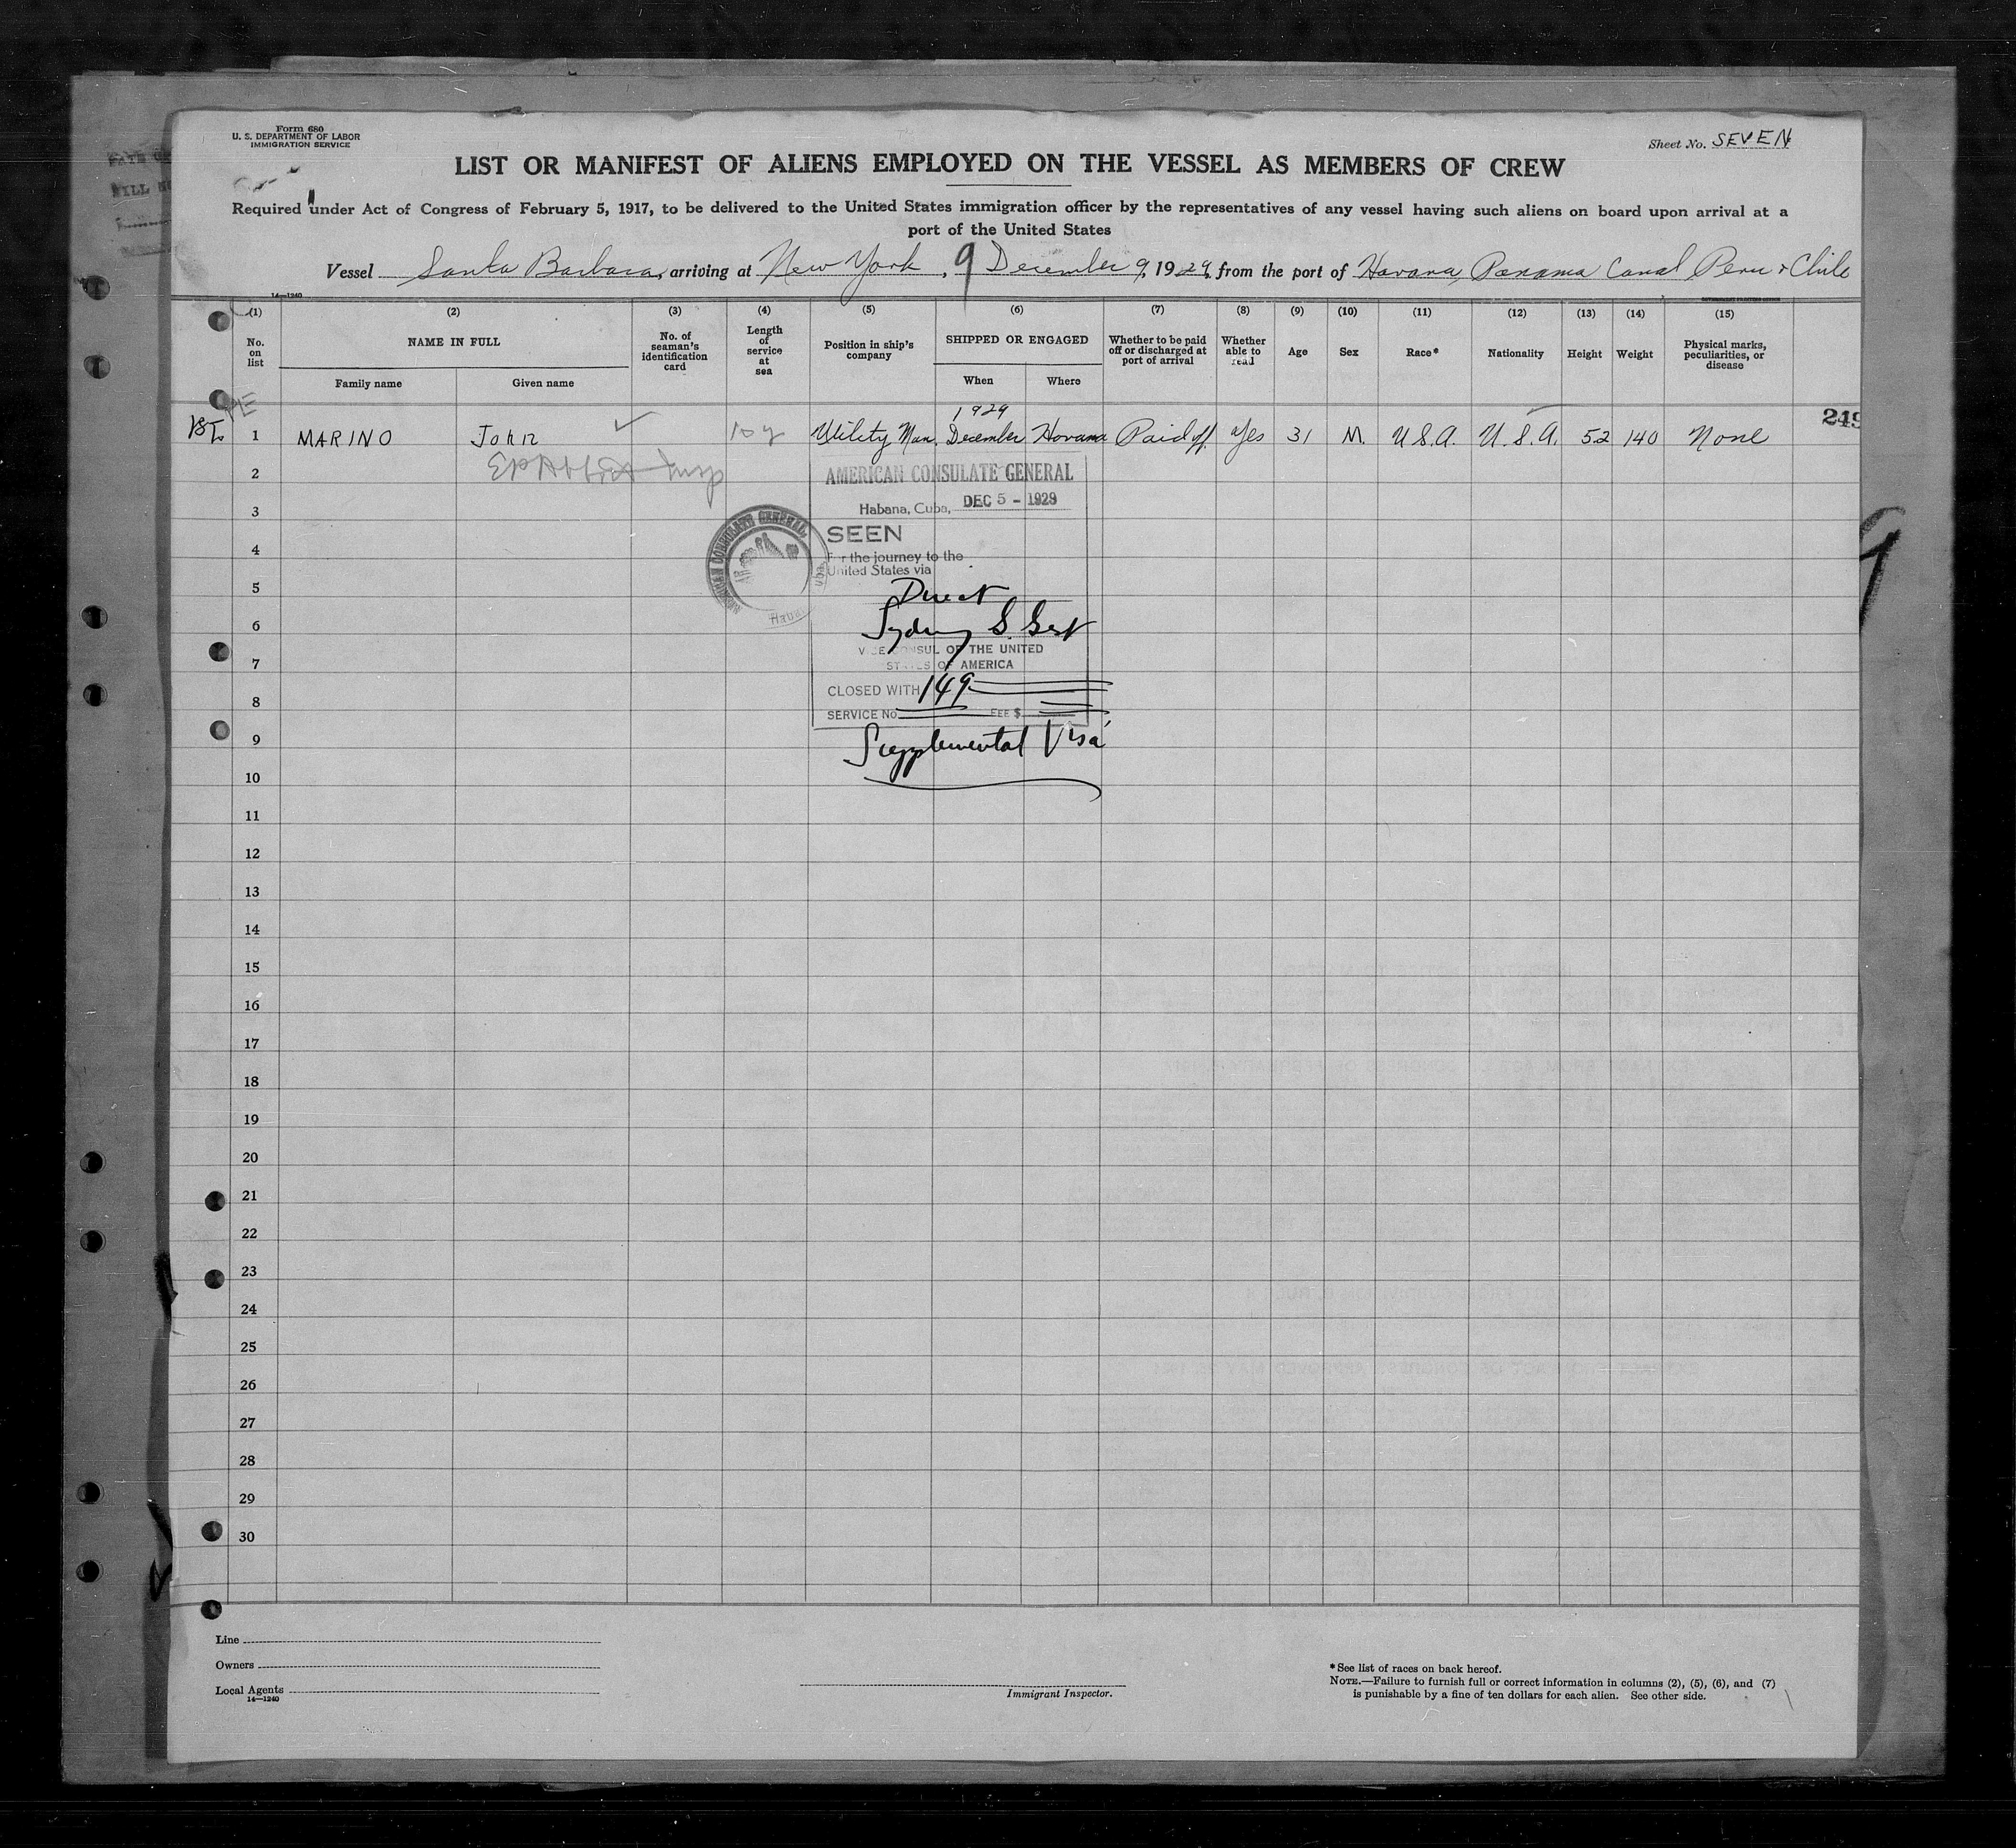 Form 680
U. S. DEPARTMENT OF LABOR
IMMIGRATION SERVICE
Sheet No. SEVEN
LIST OR MANIFEST OF ALIENS EMPLOYED ON THE VESSEL AS MEMBERS OF CREW
Required under Act of Congress of February 5, 1917, to be delivered to the United States immigration officer by the representatives of any vessel having such aliens on board upon arrival at a
port of the United States
Vessel Santa Barbara, arriving at New York, 9 December 9, 1929, from the port of Havana, Panama Canal Peru & Chile
14—1240
(1) (2) (3) (4) (5) (6) (7) (8) (9) (10) (11) (12) (13) (14) (15)
No. on list
NAME IN FULL
Family name
Given name
No. of seaman's identification card
Length of service at sea
Position in ship's company
SHIPPED OR ENGAGED
When
Where
Whether to be paid off or discharged at port of arrival
Whether able to read
Age
Sex
Race*
Nationality
Height
Weight
Physical marks, peculiarities, or disease
1929
1 MARINO John 10 y Utility Man. December Havana Paid off. Yes 31 M. U.S.A. U.S.A. 52 140 None
249
2
3
4
5
6
7
8
9
10
11
12
13
14
15
16
17
18
19
20
21
22
23
24
25
26
27
28
29
30
AMERICAN CONSULATE GENERAL
Habana, Cuba, DEC 5 - 1929
SEEN
For the journey to the
United States via
Direct
VICE CONSUL OF THE UNITED
STATES OF AMERICA
CLOSED WITH 149
SERVICE No. FEE $
Supplemental Visa
AMERICAN CONSULATE GENERAL,
9
Line
Owners
Local Agents
14—1240
Immigrant Inspector.
* See list of races on back hereof.
NOTE.—Failure to furnish full or correct information in columns (2), (5), (6), and (7)
is punishable by a fine of ten dollars for each alien. See other side.